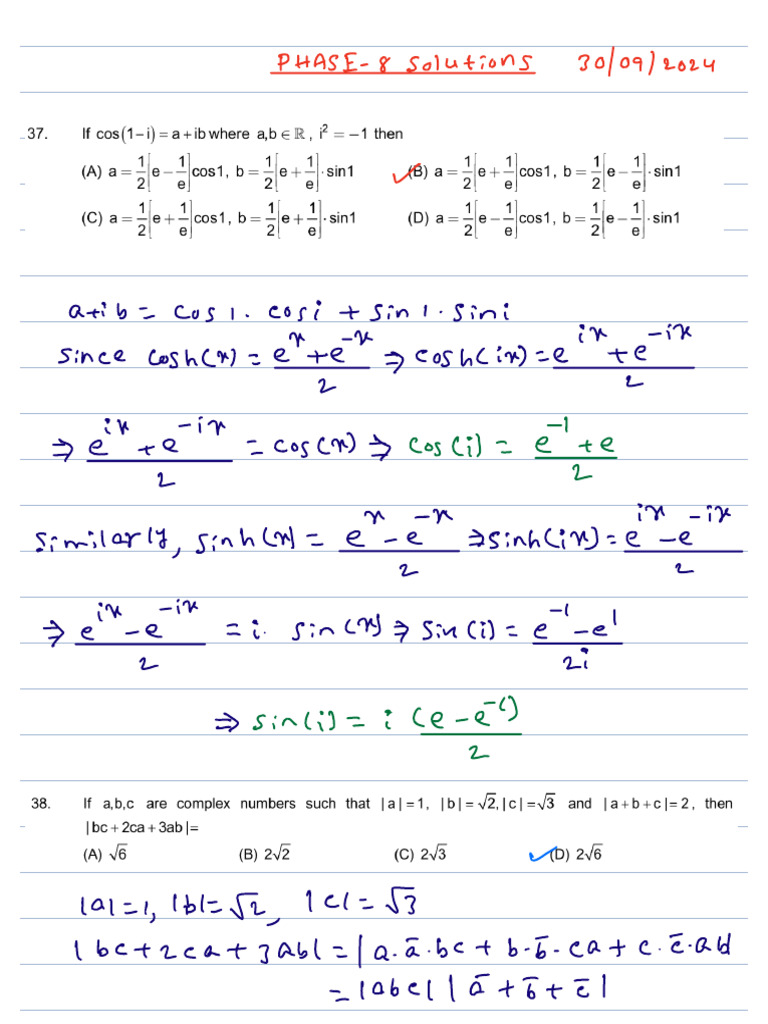 PHASE-8 Solutions 30/09/2024
37. If cos(1−i) = a + ib where a,b ∈ ℝ, i² = −1 then
(A) a = 1/2[e − 1/e]cos1, b = 1/2[e + 1/e]·sin1 (B) a = 1/2[e + 1/e]cos1, b = 1/2[e − 1/e]·sin1
(C) a = 1/2[e + 1/e]cos1, b = 1/2[e + 1/e]·sin1 (D) a = 1/2[e − 1/e]cos1, b = 1/2[e − 1/e]·sin1
a+ib = cos1. cosi + sin1. sini
since cosh(x) = (e^x + e^-x)/2 ⇒ cosh(ix) = (e^ix + e^-ix)/2
⇒ (e^ix + e^-ix)/2 = cos(x) ⇒ cos(i) = (e^-1 + e)/2
similarly, sinh(x) = (e^x − e^-x)/2 ⇒ sinh(ix) = (e^ix − e^-ix)/2
⇒ (e^ix − e^-ix)/2 = i. sin(x) ⇒ sin(i) = (e^-1 − e^1)/2i
⇒ sin(i) = i (e − e^-1)/2
38. If a,b,c are complex numbers such that |a| = 1, |b| = √2, |c| = √3 and |a + b + c| = 2, then
|bc + 2ca + 3ab| =
(A) √6 (B) 2√2 (C) 2√3 (D) 2√6
|a| = 1, |b| = √2, |c| = √3
|bc + 2ca + 3ab| = |a.ā.bc + b.b̄.ca + c.c̄.ab|
= |abc| |ā + b̄ + c̄|